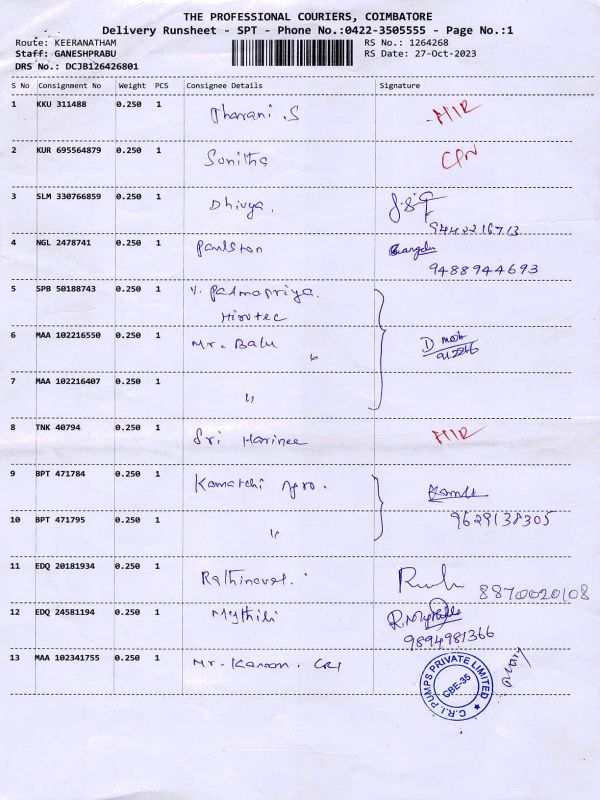 THE PROFESSIONAL COURIERS, COIMBATORE
Delivery Runsheet - SPT - Phone No.:0422-3505555 - Page No.:1
Route: KEERANATHAM RS No.: 1264268
Staff: GANESHPRABU RS Date: 27-Oct-2023
DRS No.: DCJB126426801
S No Consignment No Weight PCS Consignee Details Signature
1 KKU 311488 0.250 1 Dharani.S
2 KUR 695564879 0.250 1 Sunitha
3 SLM 330766859 0.250 1 Dhivya.
9442216713
4 NGL 2478741 0.250 1 Paulston
9488944693
5 SPB 50188743 0.250 1 V. Padmapriya.
Hirotec
6 MAA 102216550 0.250 1 Mr. Balu "
7 MAA 102216407 0.250 1 "
8 TNK 40794 0.250 1 Sri Harinee
9 BPT 471784 0.250 1 Kamatchi Agro.
9629138305
10 BPT 471795 0.250 1 "
11 EDQ 20181934 0.250 1 Rathinavel.
8870020108
12 EDQ 24581194 0.250 1 Mythili
9894981366
13 MAA 102341755 0.250 1 Mr. Kannan. CRI
C.R.I. PUMPS PRIVATE LIMITED
CBE-35